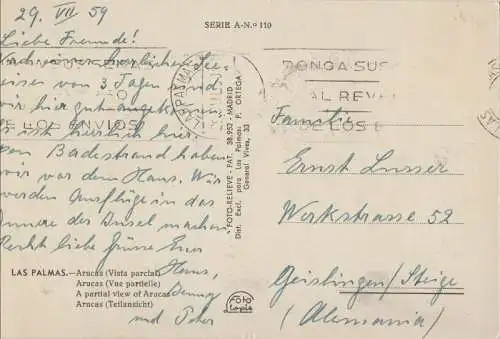 29. VII 59
SERIE A-N.º 110
Liebe Freunde!
Nach herrlicher See-
reise vom 3 Tagen sind
wir hier gut angekom
ist herrlich hier
den Badestrand haben
wir vor dem Haus. Wir
werden Ausflüge in das
Innere der Insel machen
Recht liebe Grüsse Euer
Hans,
und Peter
LAS PALMAS.—Arucas (Vista parcial)
Arucas (Vue partielle)
A partial view of Arucas
Arucas (Teilansicht)
"FOTO-RELIEVE - PAT. 38.952 - MADRID
Dist. Excl. para Las Palmas: P. ORTEGA
General Vives, 33
Foto
PONGA SUS
AL REVE
DE LOS E
DE LOS ENVIOS
Familie
Ernst Lusser
Werkstrasse 52
Geislingen/Steige
(Alemania)